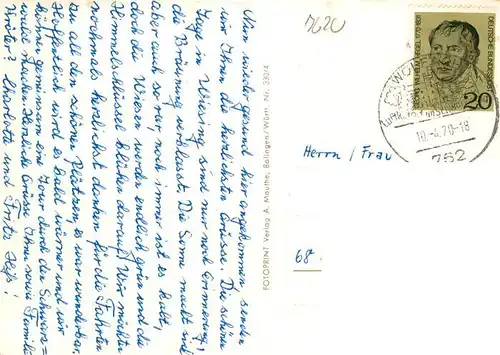 Nun wieder gesund hier angekommen senden
wir Ihnen die herzlichsten Grüsse. Die schönen
Tage in Wössing sind nur noch Erinnerung,
die Bräunung verblasst. Die Sonne macht sich
aber auch rar, noch immer ist es kalt,
doch die Wiesen werden endlich grün und die
Himmelschlüssel blühen darauf! Wir möchten
nochmals herzlichst danken für die Fahrten
zu all den schönen Plätzen es war wunderbar.
Hoffentlich wird es bald wärmer und wir
können gemeinsam eine Tour durch den Schwarz=
wald machen. Herzliche Grüsse Ihnen sowie Familie
Charlotte und Fritz Heß!
FOTOPRINT Verlag A. Mauthe, Balingen/Württ. Nr. 330/4
7620
DEUTSCHE BUNDESPOST
20
10.-4.70-18
752
Herrn / Frau
68.